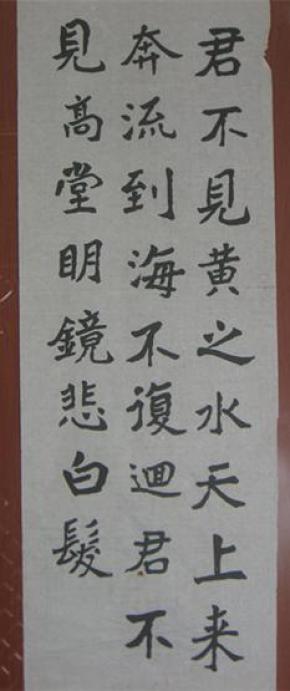 君不見黄之水天上来
奔流到海不復迴君不
見高堂明鏡悲白髮